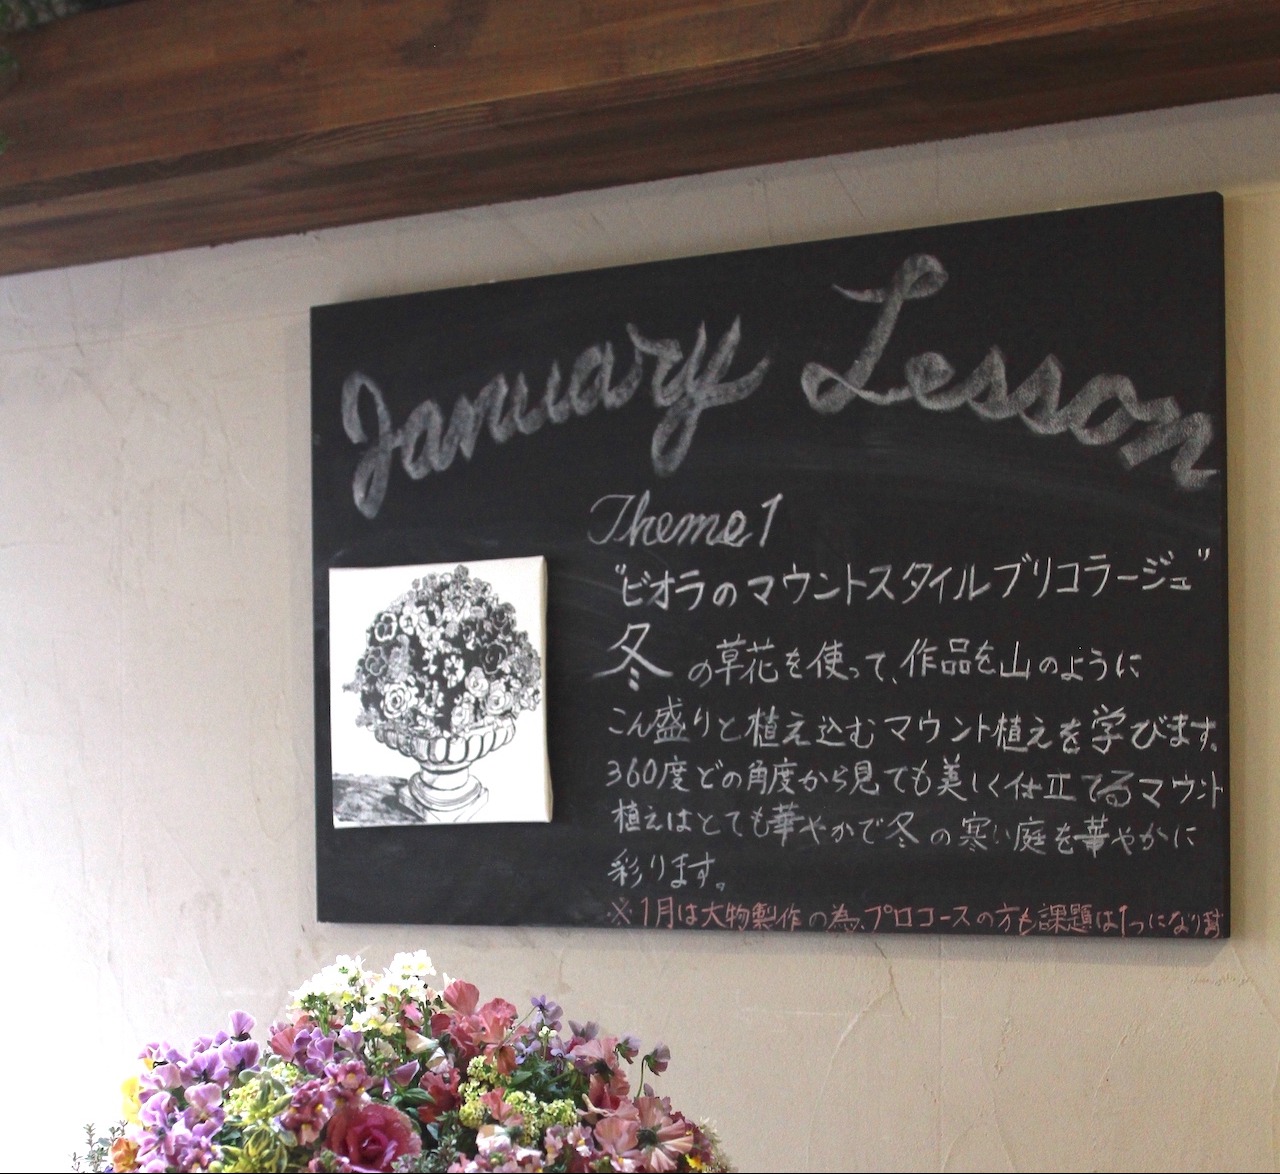 January Lesson
Theme 1
"ビオラのマウントスタイルブリコラージュ"
冬の草花を使って、作品を山のように
こん盛りと植え込むマウント植えを学びます。
360度どの角度から見ても美しく仕立てるマウント
植えはとても華やかで冬の寒い庭を華やかに
彩ります。
※1月は大物製作の為、プロコースの方も課題は1つになります